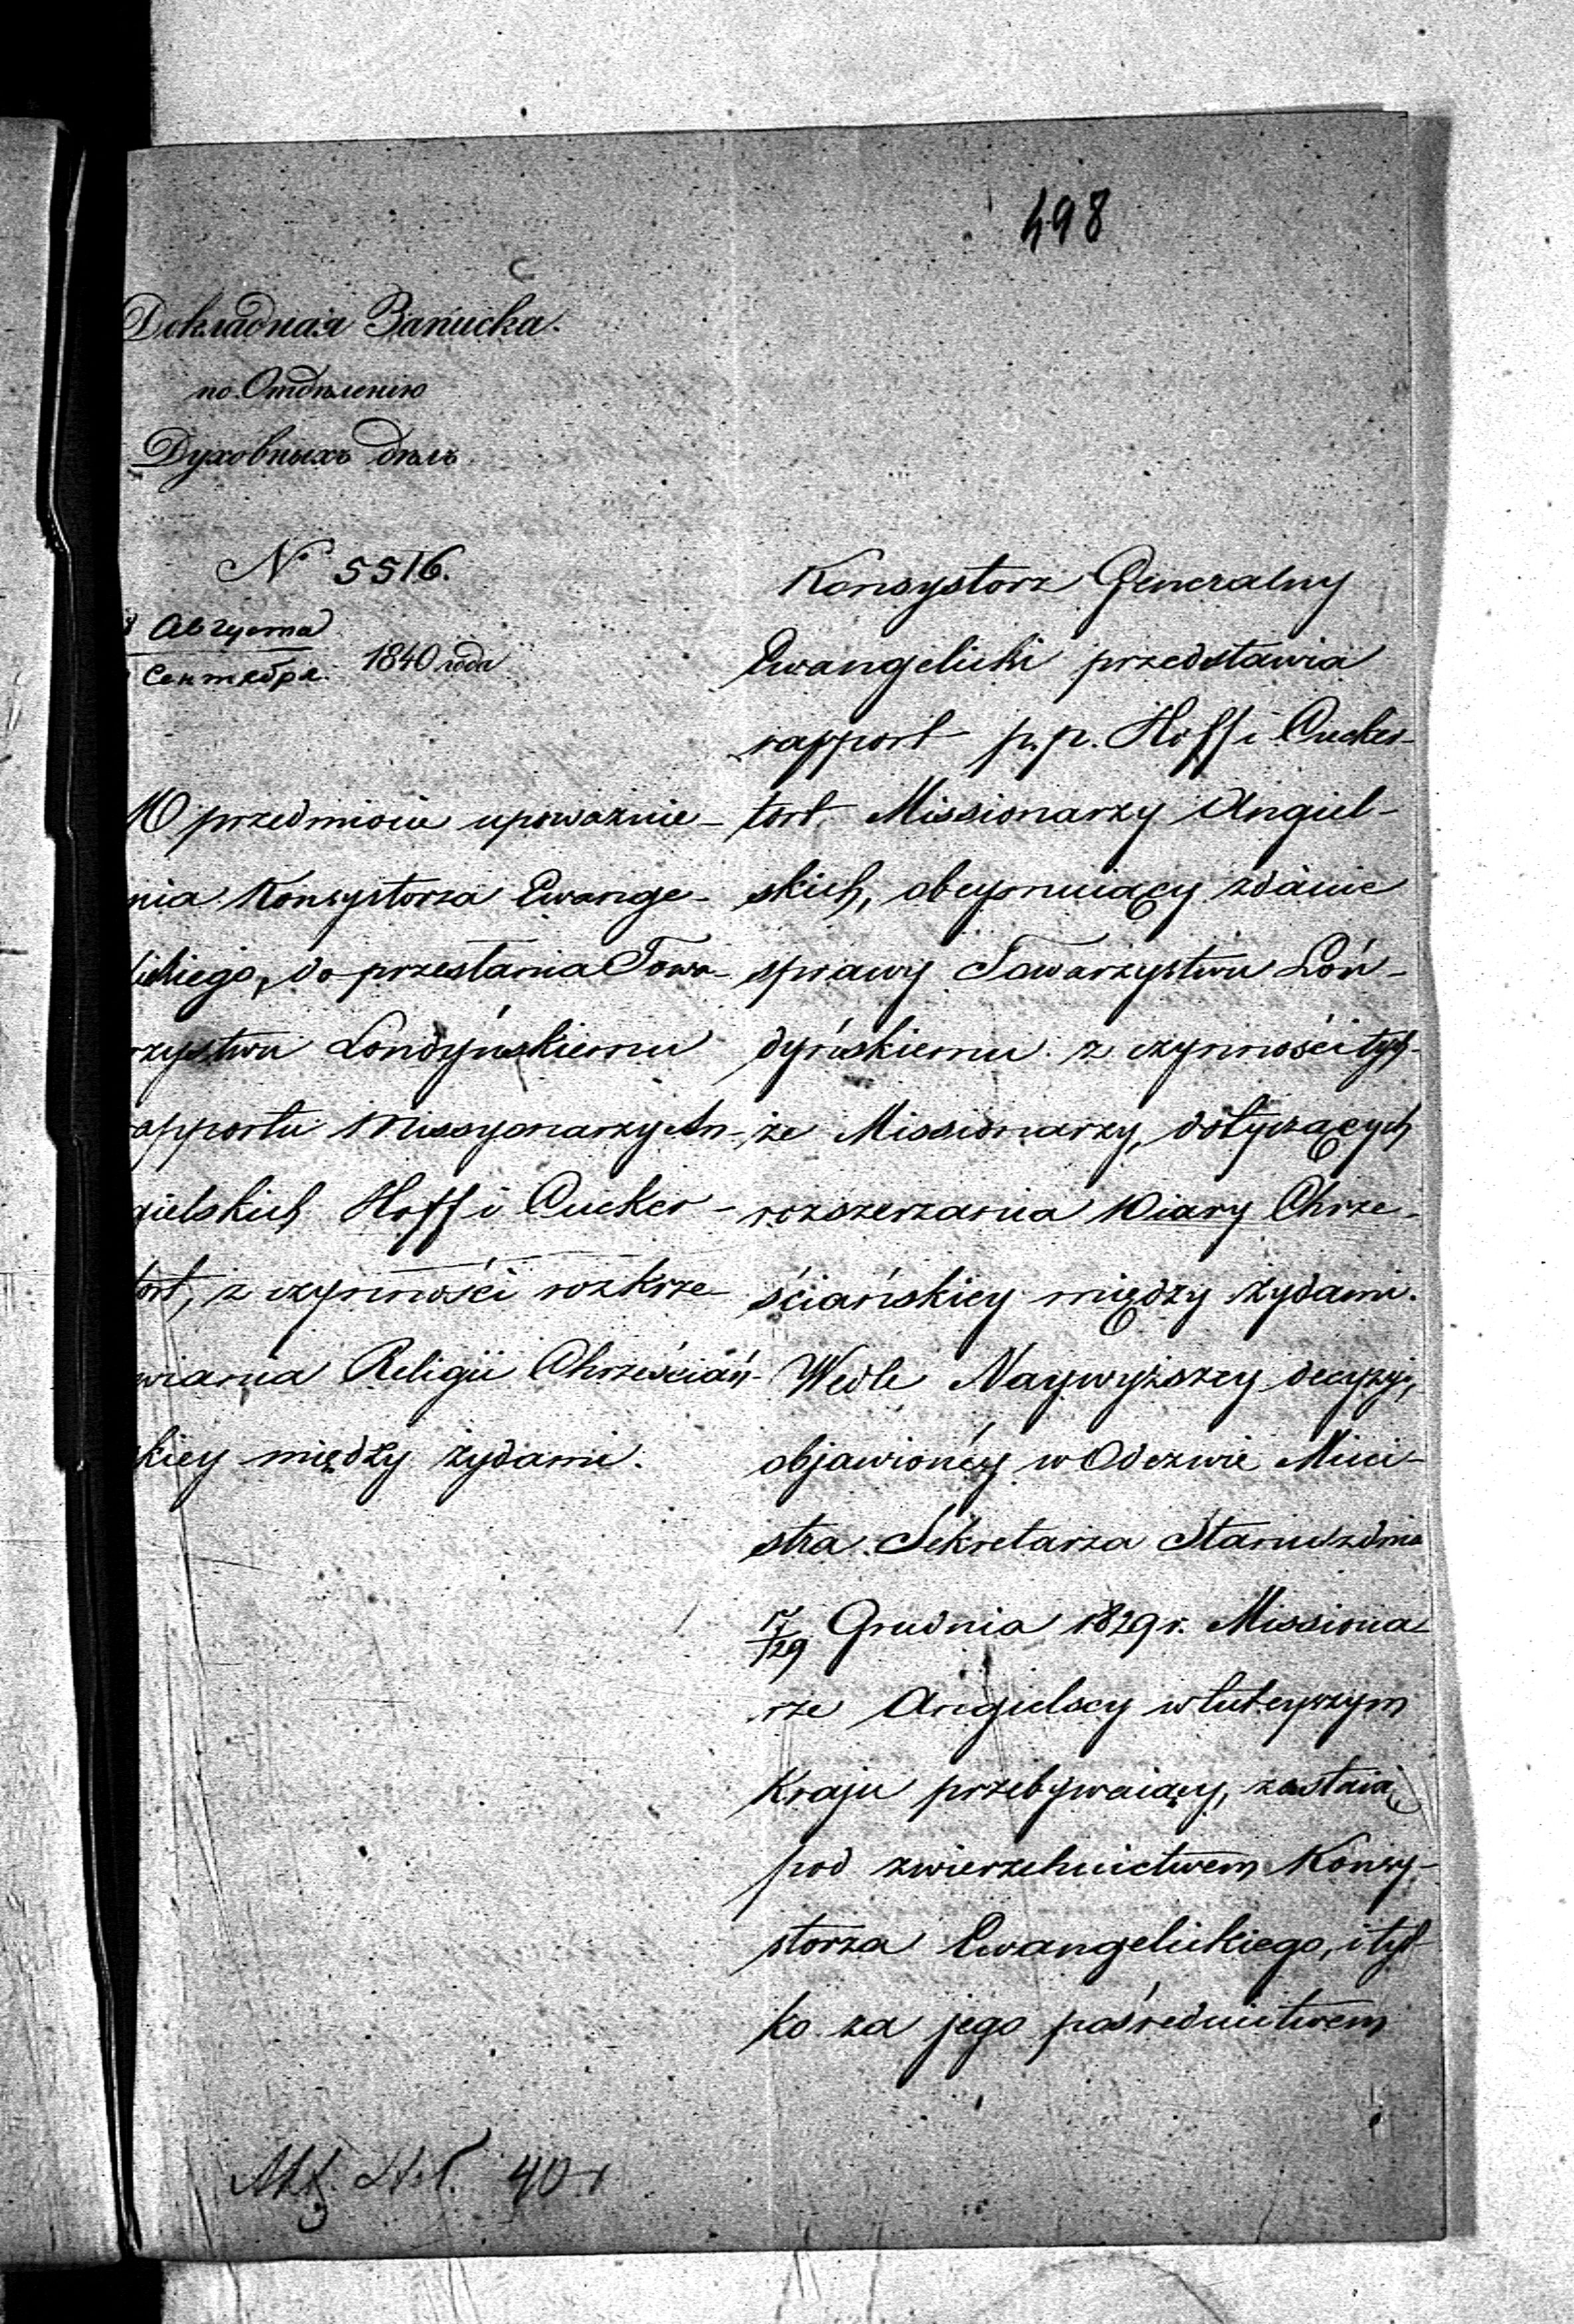 498
Докладная Записка.
по Отдѣленію
Духовныхъ дѣлъ
№ 5516.
Августа
Сентября 1840 года
W przedmiocie upoważnie-
nia Konsystorza Ewange-
lickiego, do przesłania Towa-
rzystwu Londyńskiemu
rapportu Missyonarzy An-
gielskich Hoff i Cucker-
tort, z czynności rozkrze-
wiania Religii Chrześciań-
skiey między żydami.
Konsystorz Generalny
Ewangelicki przedstawia
rapport p.p. Hoff i Cucker-
tort Missionarzy Angiel-
skich, obeymuiący zdanie
sprawy Towarzystwu Lon-
dyńskiemu z czynności tych-
że Missionarzy, dotyczących
rozszerzania Wiary Chrze-
ściańskiey między żydami.
Wedle Naywyższey decyzyi,
objawioney w Odezwie Mini-
stra Sekretarza Stanu z dnia
17/29 Grudnia 1829 r. Missiona
rze Angielscy w tuteyszym
Kraju przebywaiący, zostaią
pod zwierzchnictwem Konsy-
storza Ewangelickiego, i tyl-
ko za jego pośrednictwem
40